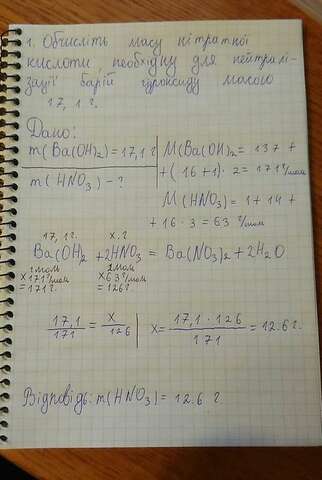 1. Обчисліть масу нітратної
кислоти, необхідну для нейтралі-
зації барій гідроксиду масою
17,1 г.
Дано:
m(Ba(OH)₂)=17,1 г
m(HNO₃) - ?
M(Ba(OH)₂ = 137 +
+(16+1)·2=171 г/моль
M(HNO₃)=1+14+
+16·3=63 г/моль
17,1г. x.г
Ba(OH)₂ + 2HNO₃ = Ba(NO₃)₂ + 2H₂O
1 моль 2 моль
x171 г/моль x63 г/моль
=171г. =126г
17,1/171 = x/126 | x= 17,1·126/171 = 12.6 г.
Відповідь: m(HNO₃)=12.6 г.